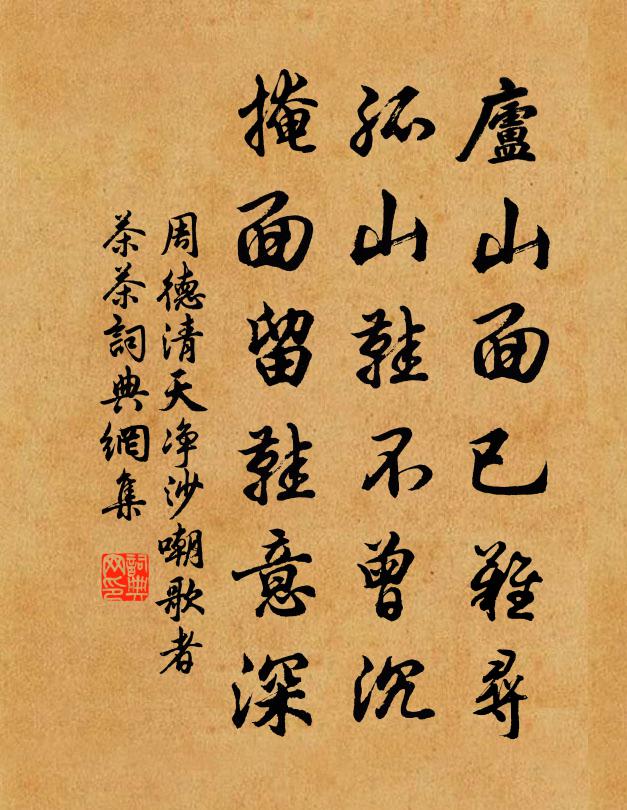 廬山面已難尋
孤山鞋不曾沉
掩面留鞋意深
周德清天净沙嘲歌者
茶茶詞典網集
詞典网印